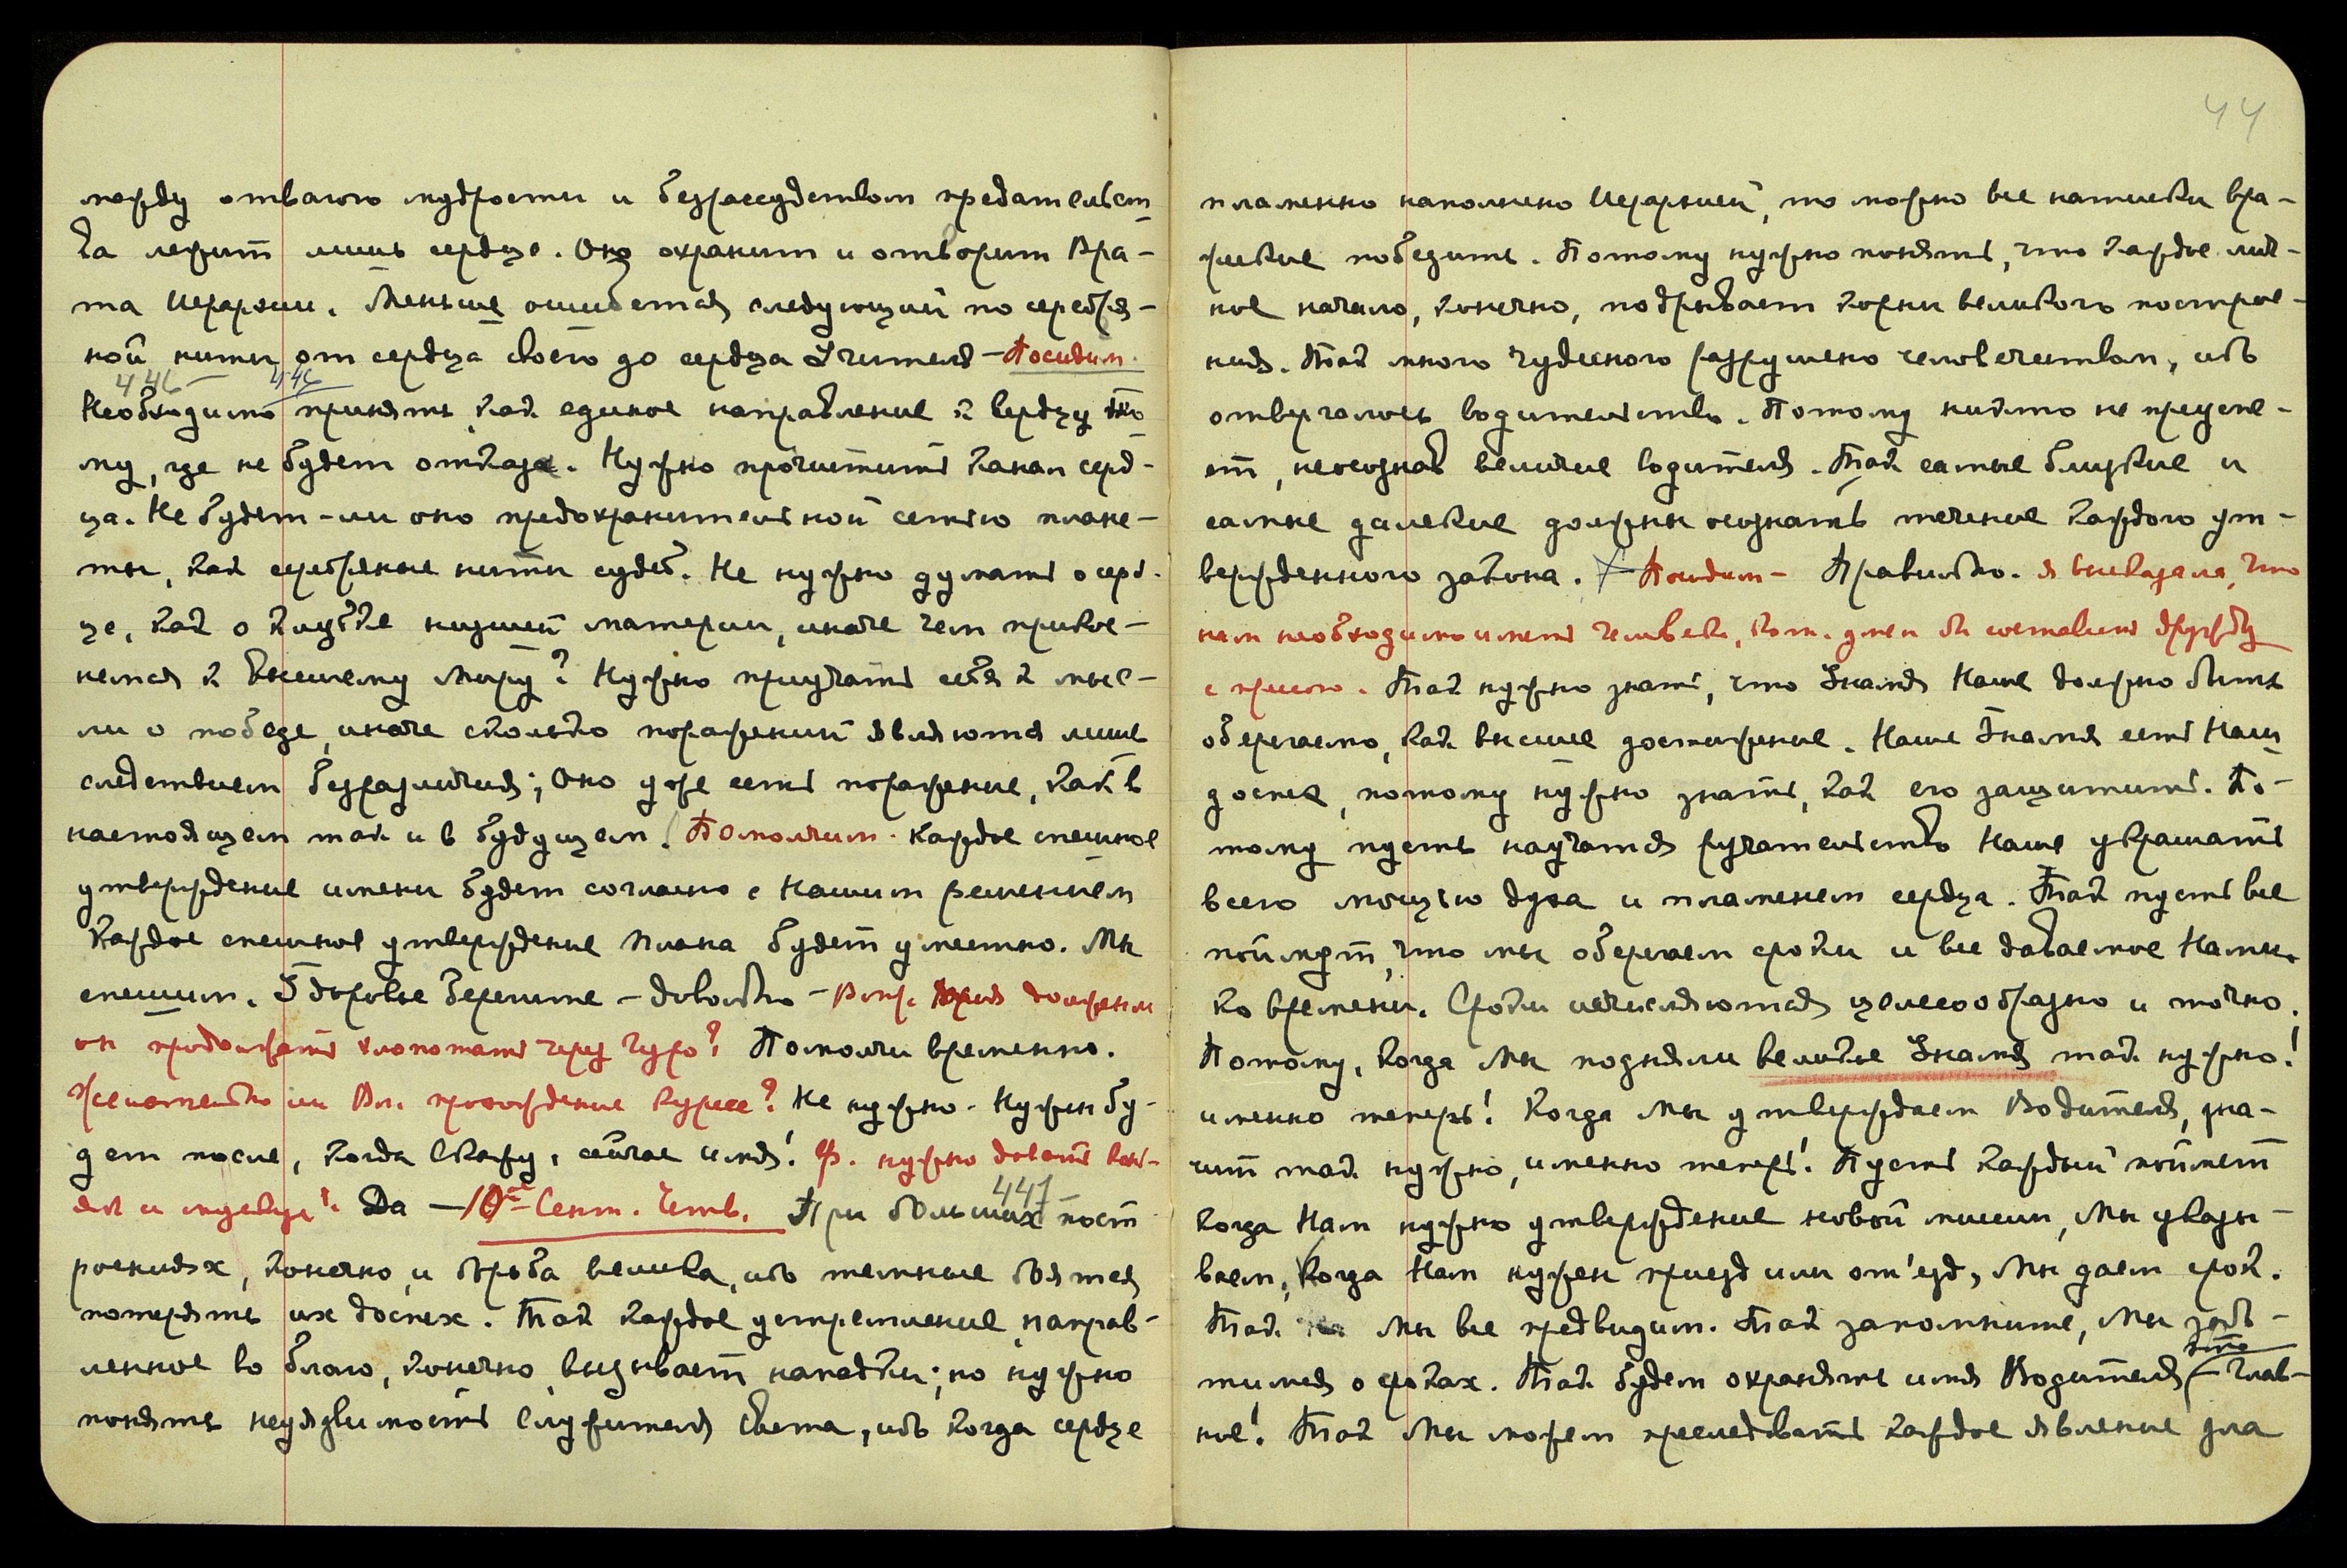 между отвагою мудрости и безрассудством предательст
ва лежит лишь сердце. Оно охранит и отворит Вра-
та Иерархии. Меньше ошибется следующий по серебря-
ной нити от сердца своего до сердца Учителя - Посидим.
446 446
Необходимо принять как единое направление к сердцу то
му, где не будет отказа. Нужно прочистить канал серд-
ца. Не будет-ли оно предохранительной сетью плане-
ты, как серебряные нити судеб. Не нужно думать о серд-
це, как о клубке низшей материи, иначе чем прикос-
немся к Высшему Миру? Нужно приучать себя к мыс-
ли о победе, иначе сколько поражений являются лишь
следствием безразличия; Оно уже есть поражение, как в
настоящем так и в будущем! Помолчим. Каждое спешное
утверждение имени будет согласно с Нашим решением
Каждое спешное утверждение плана будет уместно. Мы
спешим. Здоровье берегите - довольно - должен ли
он продолжать хлопотать через Помолчи временно.
Желательно ли прохождение курса? Не нужно. Нужен бу-
дет после, когда Скажу, сейчас имя! Ф. нужно давать
и Да - 10ое Сент. Четв. 447 При больших пост
роениях, конечно, и борьба велика, ибо темные боятся
потерять их доспех. Так каждое устремление, направ-
ленное ко благо, конечно, вызывает нападки; но нужно
понять неуязвимость Служителя Света, ибо когда сердце
44
пламенно наполнено Иерархией, то можно все натиски вра-
жеские победить. Потому нужно понять, что каждое лич-
ное начало, конечно, подрывает корни великого построе-
ния. Так много чудесного разрушено человечеством, ибо
отвергалось водительство. Потому никто не преуспе-
ет, неосознав величие водителя. Так самые близкие и
самые далекие должны осознать течение каждого ут-
вержденного закона. Посидим - Правильно. Я высказала, что
нам необходимо иметь человека, кот. умел бы составить дружбу
с прессою. Так нужно знать, что Знамя Наше должно быть
оберегаемо, как высшее достижение. Наше Знамя есть Наш
доспех, потому нужно знать, как его защитить. По-
тому пусть научатся ручательство Наше украшать
всею мощью духа и пламенем сердца. Так пусть все
поймут, что мы оберегаем сроки и все даваемое Нами
ко времени. Сроки исчисляются целесообразно и точно.
Потому, когда Мы подняли великое Знамя так нужно!
именно теперь! Когда Мы утверждаем Водителя, зна-
чит так нужно, именно теперь! Пусть каждый поймет
когда Нам нужно утверждение новой мысли, Мы указы-
ваем, когда Нам нужен приезд или от'езд, Мы даем срок.
Так Мы все предвидим. Так запомните, Мы забо-
тимся о сроках. Так будем охранять имя Водителя (это - глав-
ное! Так Мы можем преследовать каждое явление зла